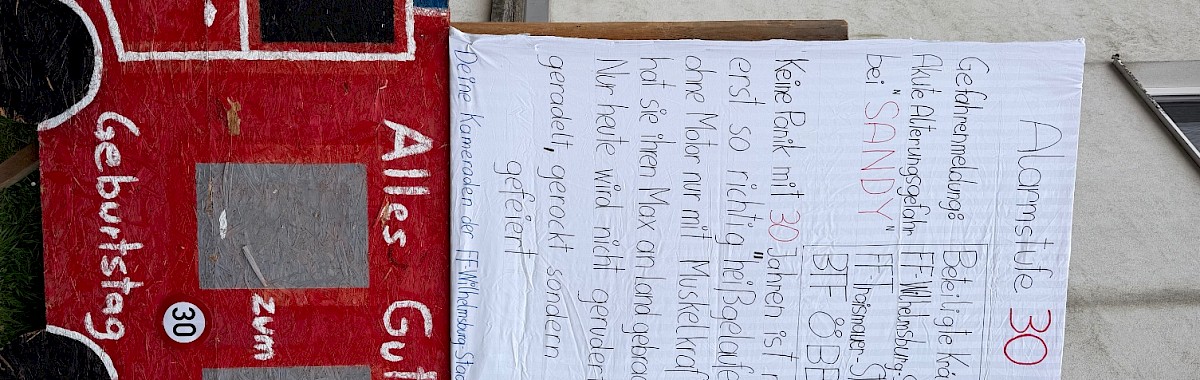 Alarmstufe 30
Gefahrenmeldung: Beteiligte
Akute Alterungsgefahr FF-Wilhelmsburg-
bei "SANDY" FF-Traisnauer-St
BTF ÖB
Keine Panik mit 30 Jahren ist
erst so richtig heiß gelaufe
ohne Motor nur mit Muskelkraf
hat sie ihren Max an land gebrac
Nur heute wird nicht gerudert
geradelt, gerockt sondern
gefeiert
Deine Kameraden der FF-Wilhelmsburg-Stad
Alles Gut
zum
30
Geburtstag